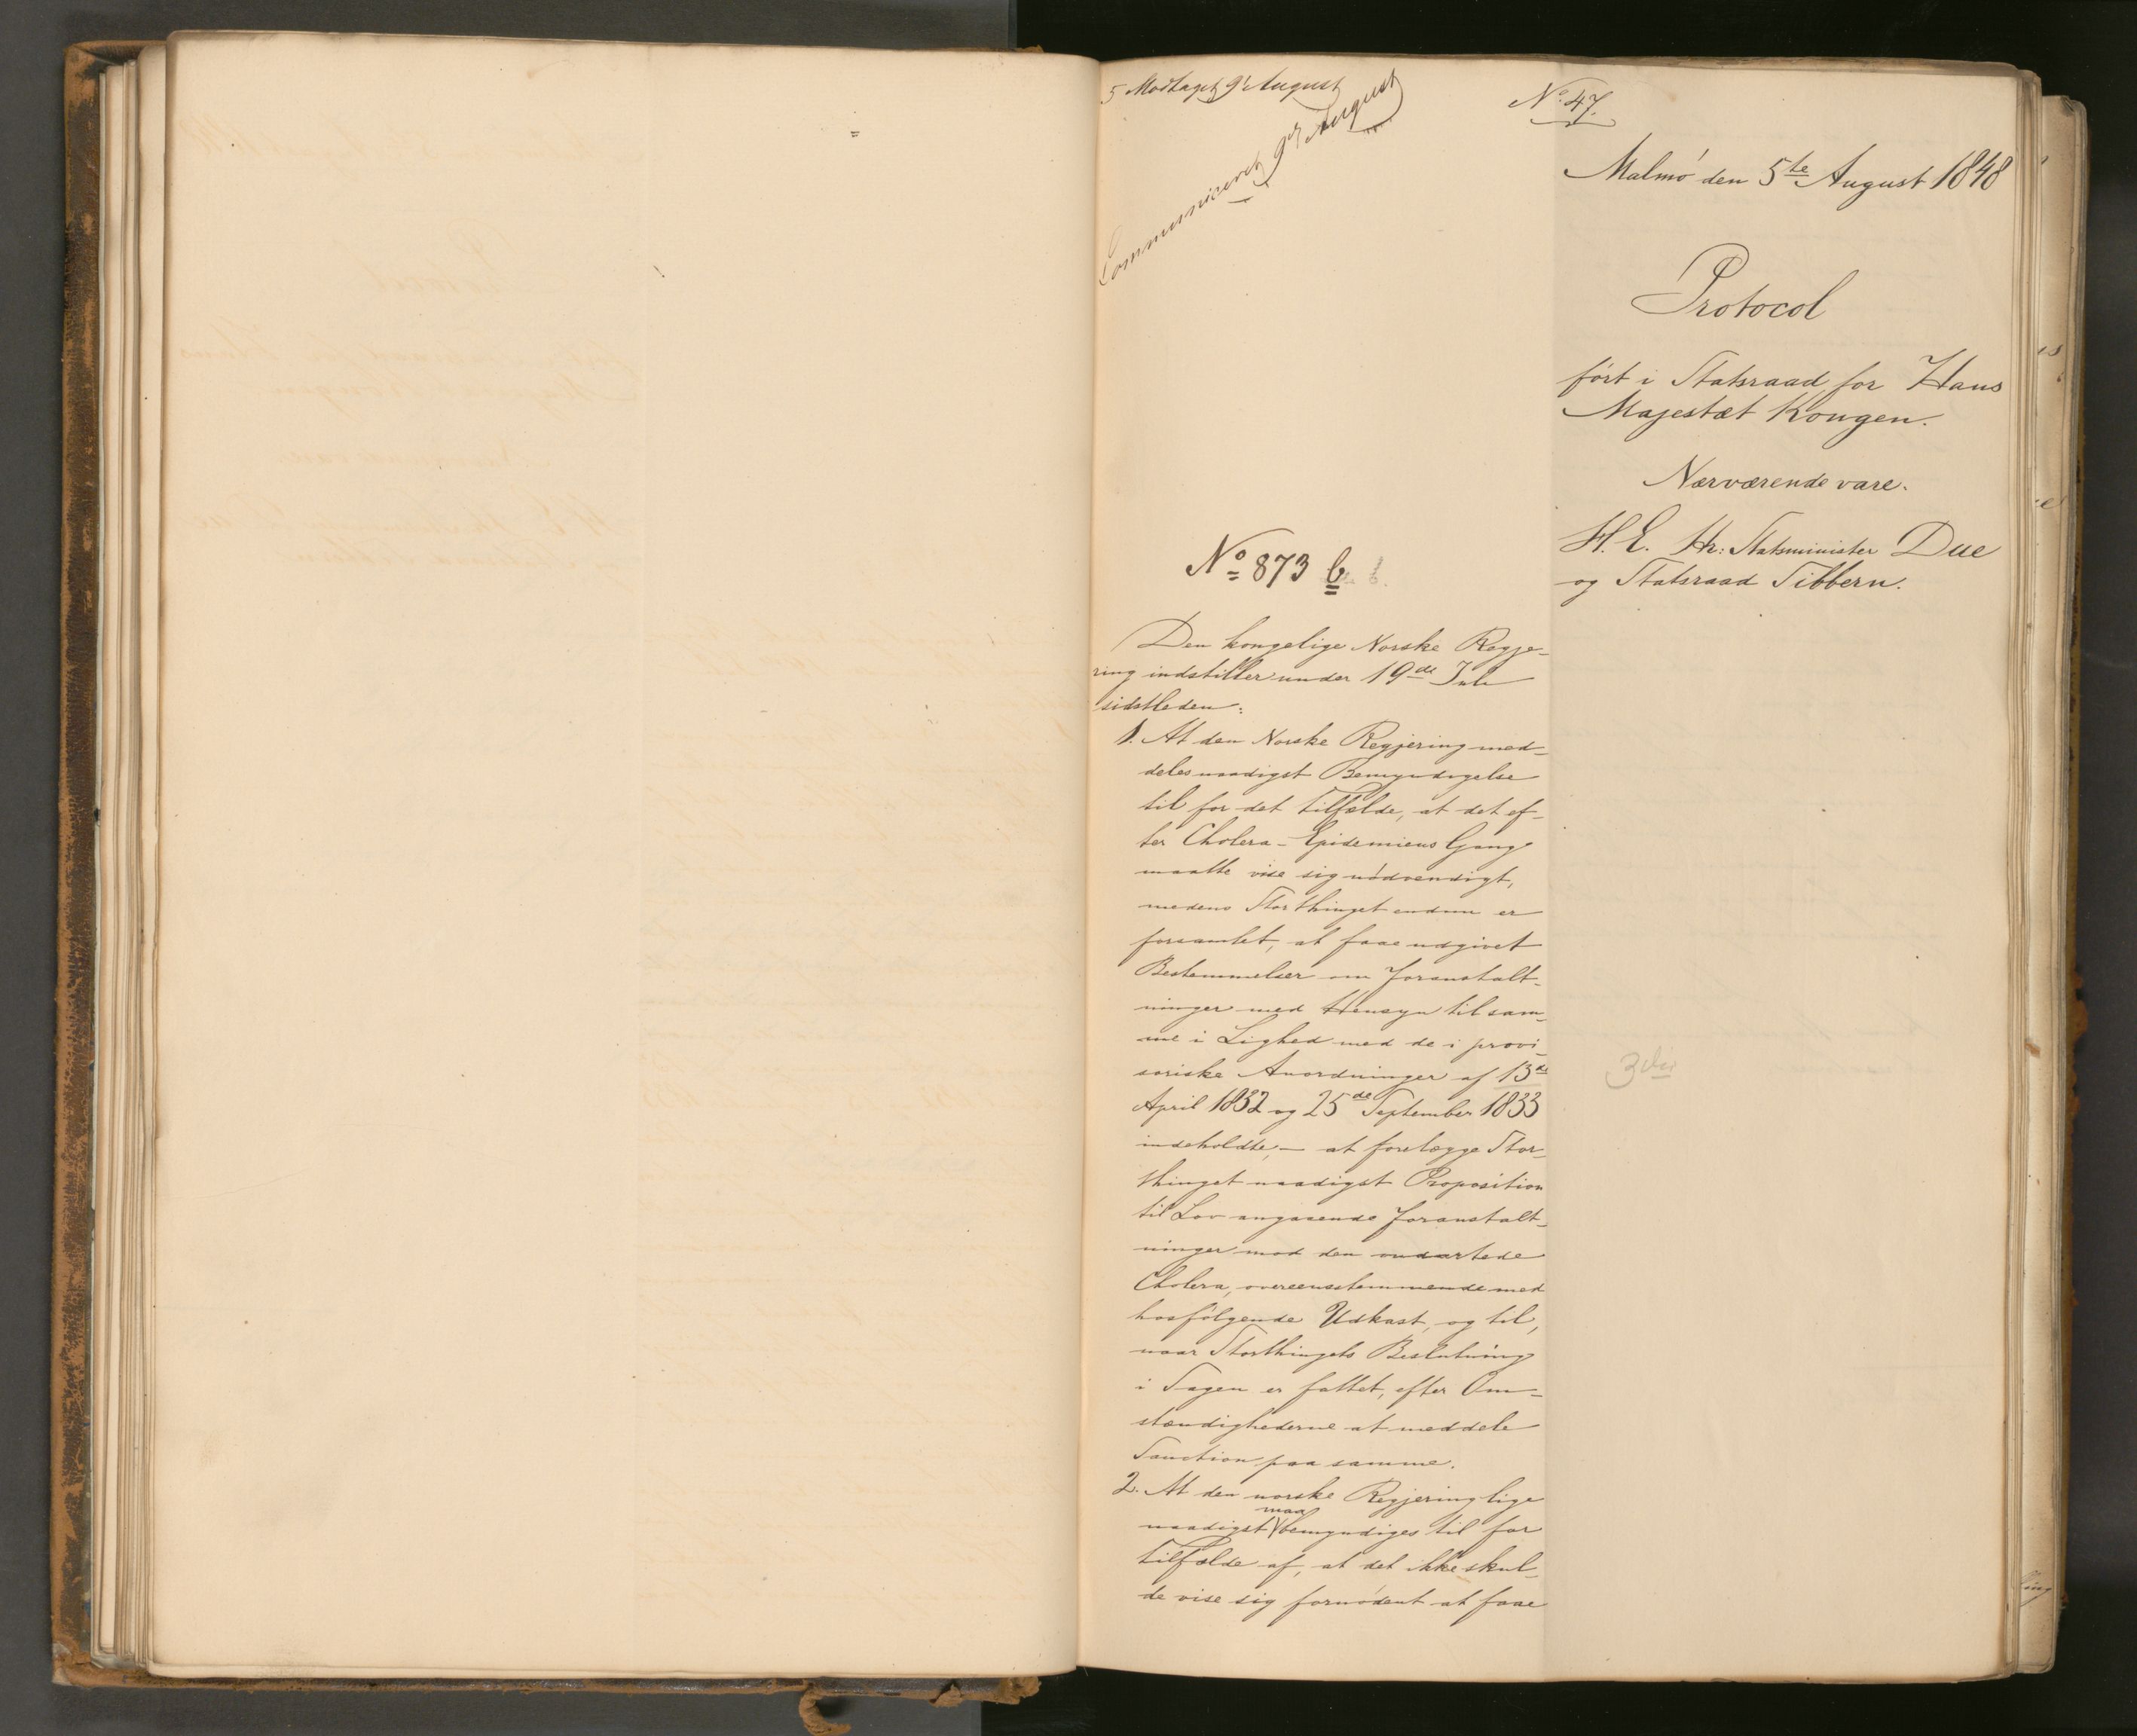 5 Modtaget 9de August
Communiceret 9de August
No 47.
Malmö den 5te August 1848
Protocol
ført i Statsraad for Hans
Majestæt Kongen.
Nærværende vare.
H. E. Hr: Statsminister Due
og Statsraad Sibbern.
No 873 b
Den kongelige Norske Regje-
ring indstiller under 19de Juli
sidstleden:
1. At den Norske Regjering med-
deles naadigst Bemyndigelse
til for det Tilfælde, at det ef-
ter Cholera-Epidemiens Gang
maatte vise sig nødvendigt,
medens Storthinget endnu er
forsamlet, at faae udgivet
Bestemmelser om Foranstalt-
ninger med Hensyn til sam-
me i Lighed med de i provi-
soriske Anordninger af 13de
April 1832 og 25de September 1833
indeholdte, – at forelægge Stor-
thinget naadigst Proposition
til Lov angaaende Foranstalt-
ninger mod den ondartede
Cholera, overeensstemmende med
hosfølgende Udkast, og til,
naar Storthingets Beslutning
i Sagen er fattet, efter Om-
stændighederne at meddele
Sanction paa samme.
2. At den norske Regjering lige
naadigst maa bemyndiges til for
Tilfælde af, at det ikke skul-
de vise sig fornødent at faae